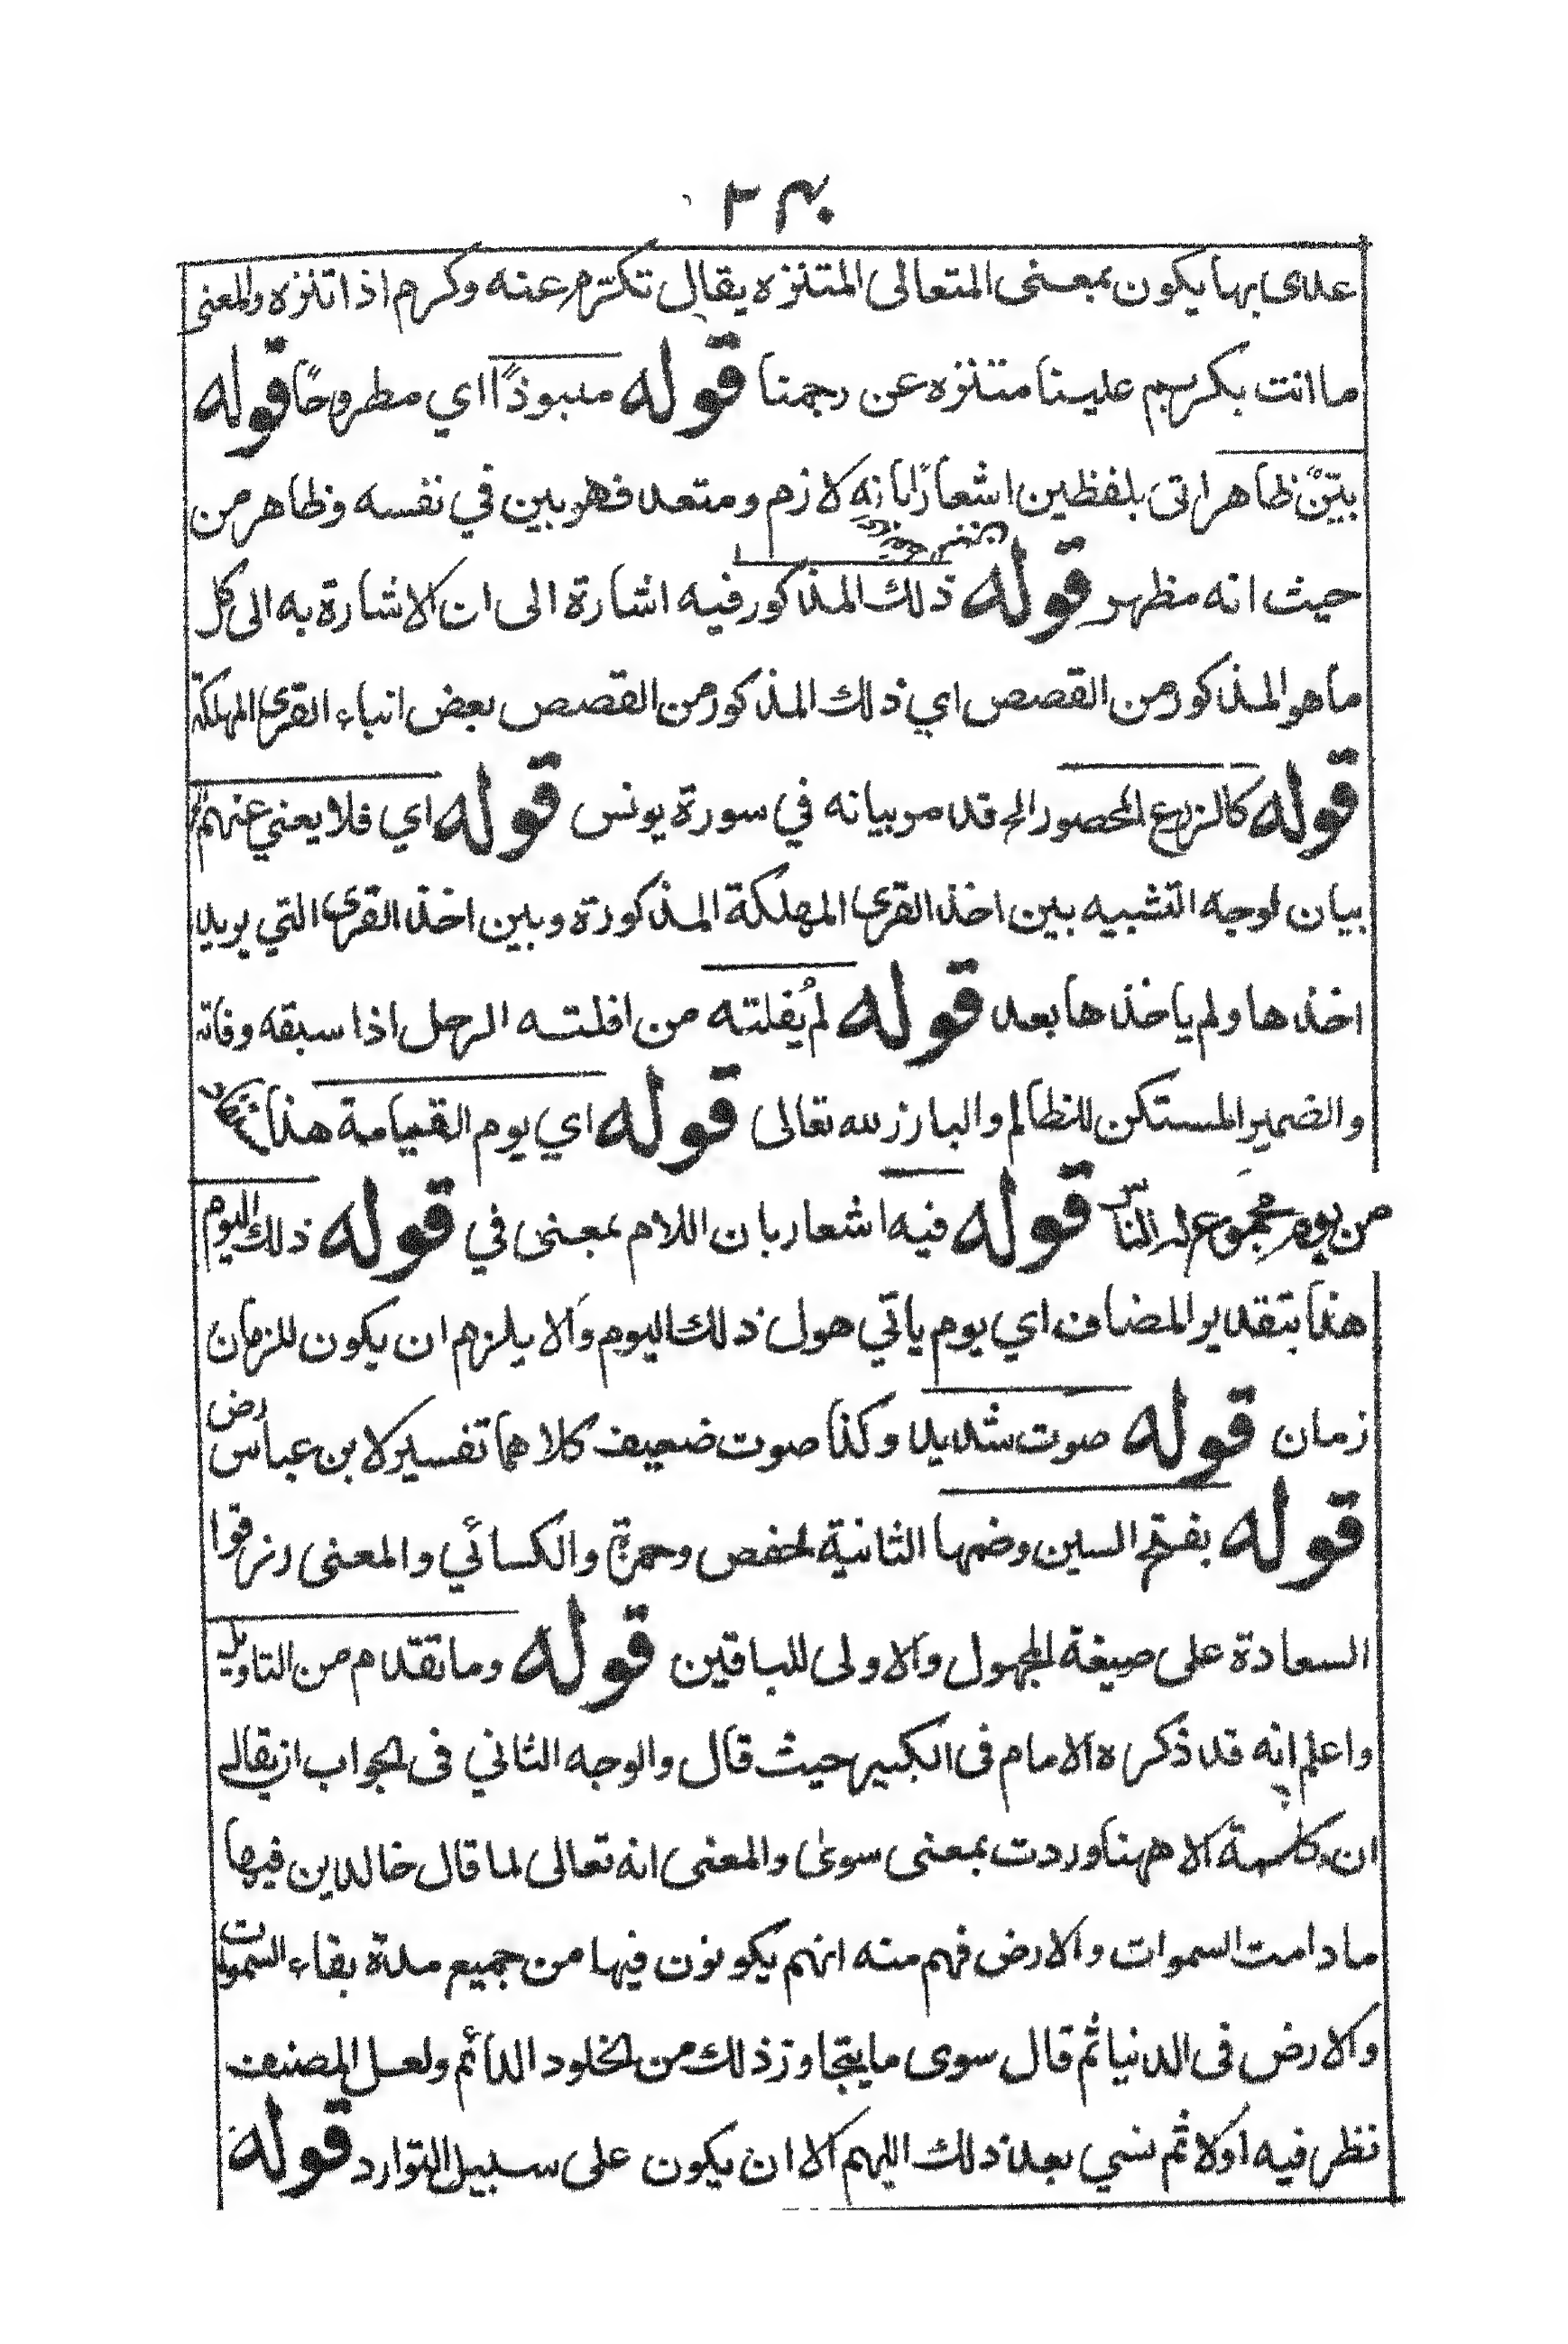 ٣٠٢
علای بها یکون بمعنی المتعالی المتنزه یقال تکرّم عنه وکرم اذا تنزه والمعنی
ما انت بکریم علینا متنزه عن رجمنا قوله منبوذًا ای مطروحًا قوله
بیّنٌ ظاهر اتی بلفظین اشعارًا بانه لازم ومتعد فهو بین في نفسه وظاهر من
حیث انه مظهر قوله ذلك المذکور فیه اشارة الی ان الاشارة به الی کل
ما هو المذکور من القصص اي ذلك المذکور من القصص بعض انباء القری المهلکة
قوله کالزرع المحصور الخ قد مر بیانه في سورة یونس قوله اي فلا یعني عنهم
بیان لوجه التشبیه بین اخذ القری المهلکة المذکورة وبین اخذ القری التي یرید
اخذها ولم یاخذها بعد قوله لم یُفلته من افلتـه الرجل اذا سبقه وفاته
والضمیر المستکن للظالم والبارز لله تعالی قوله اي یوم القیامة هذا
من یوم مجموع له الناس قوله فیه اشعار بان اللام بمعنی في قوله ذلك الیوم
هذا بتقدیر المضاف اي یوم یاتي هول ذلك الیوم والا یلزم ان یکون للزمان
زمان قوله صوت شدید وکذا صوت ضعیف کلاهما تفسیر لابن عباس رض
قوله بفتح السین وضمها الثانیة لحفص وحمزة والکسائي والمعنی رزقوا
السعادة علی صیغة المجهول والاولی للباقین قوله وما تقدم من التاویل
واعلم انه قد ذکره الامام فی الکبیر حیث قال والوجه الثاني فی الجواب ان یقال
ان کلمة الا ههنا وردت بمعنی سوی والمعنی انه تعالی لما قال خالدین فیها
ما دامت السموات والارض فهم منه انهم یکونون فیها من جمیع مدة بقاء السموات
والارض فی الدنیا ثم قال سوی ما یتجاوز ذلك من الخلود الدائم ولعل المصنف
نظر فیه اولا ثم نسي بعد ذلك اللهم الا ان یکون علی سبیل التوارد قوله